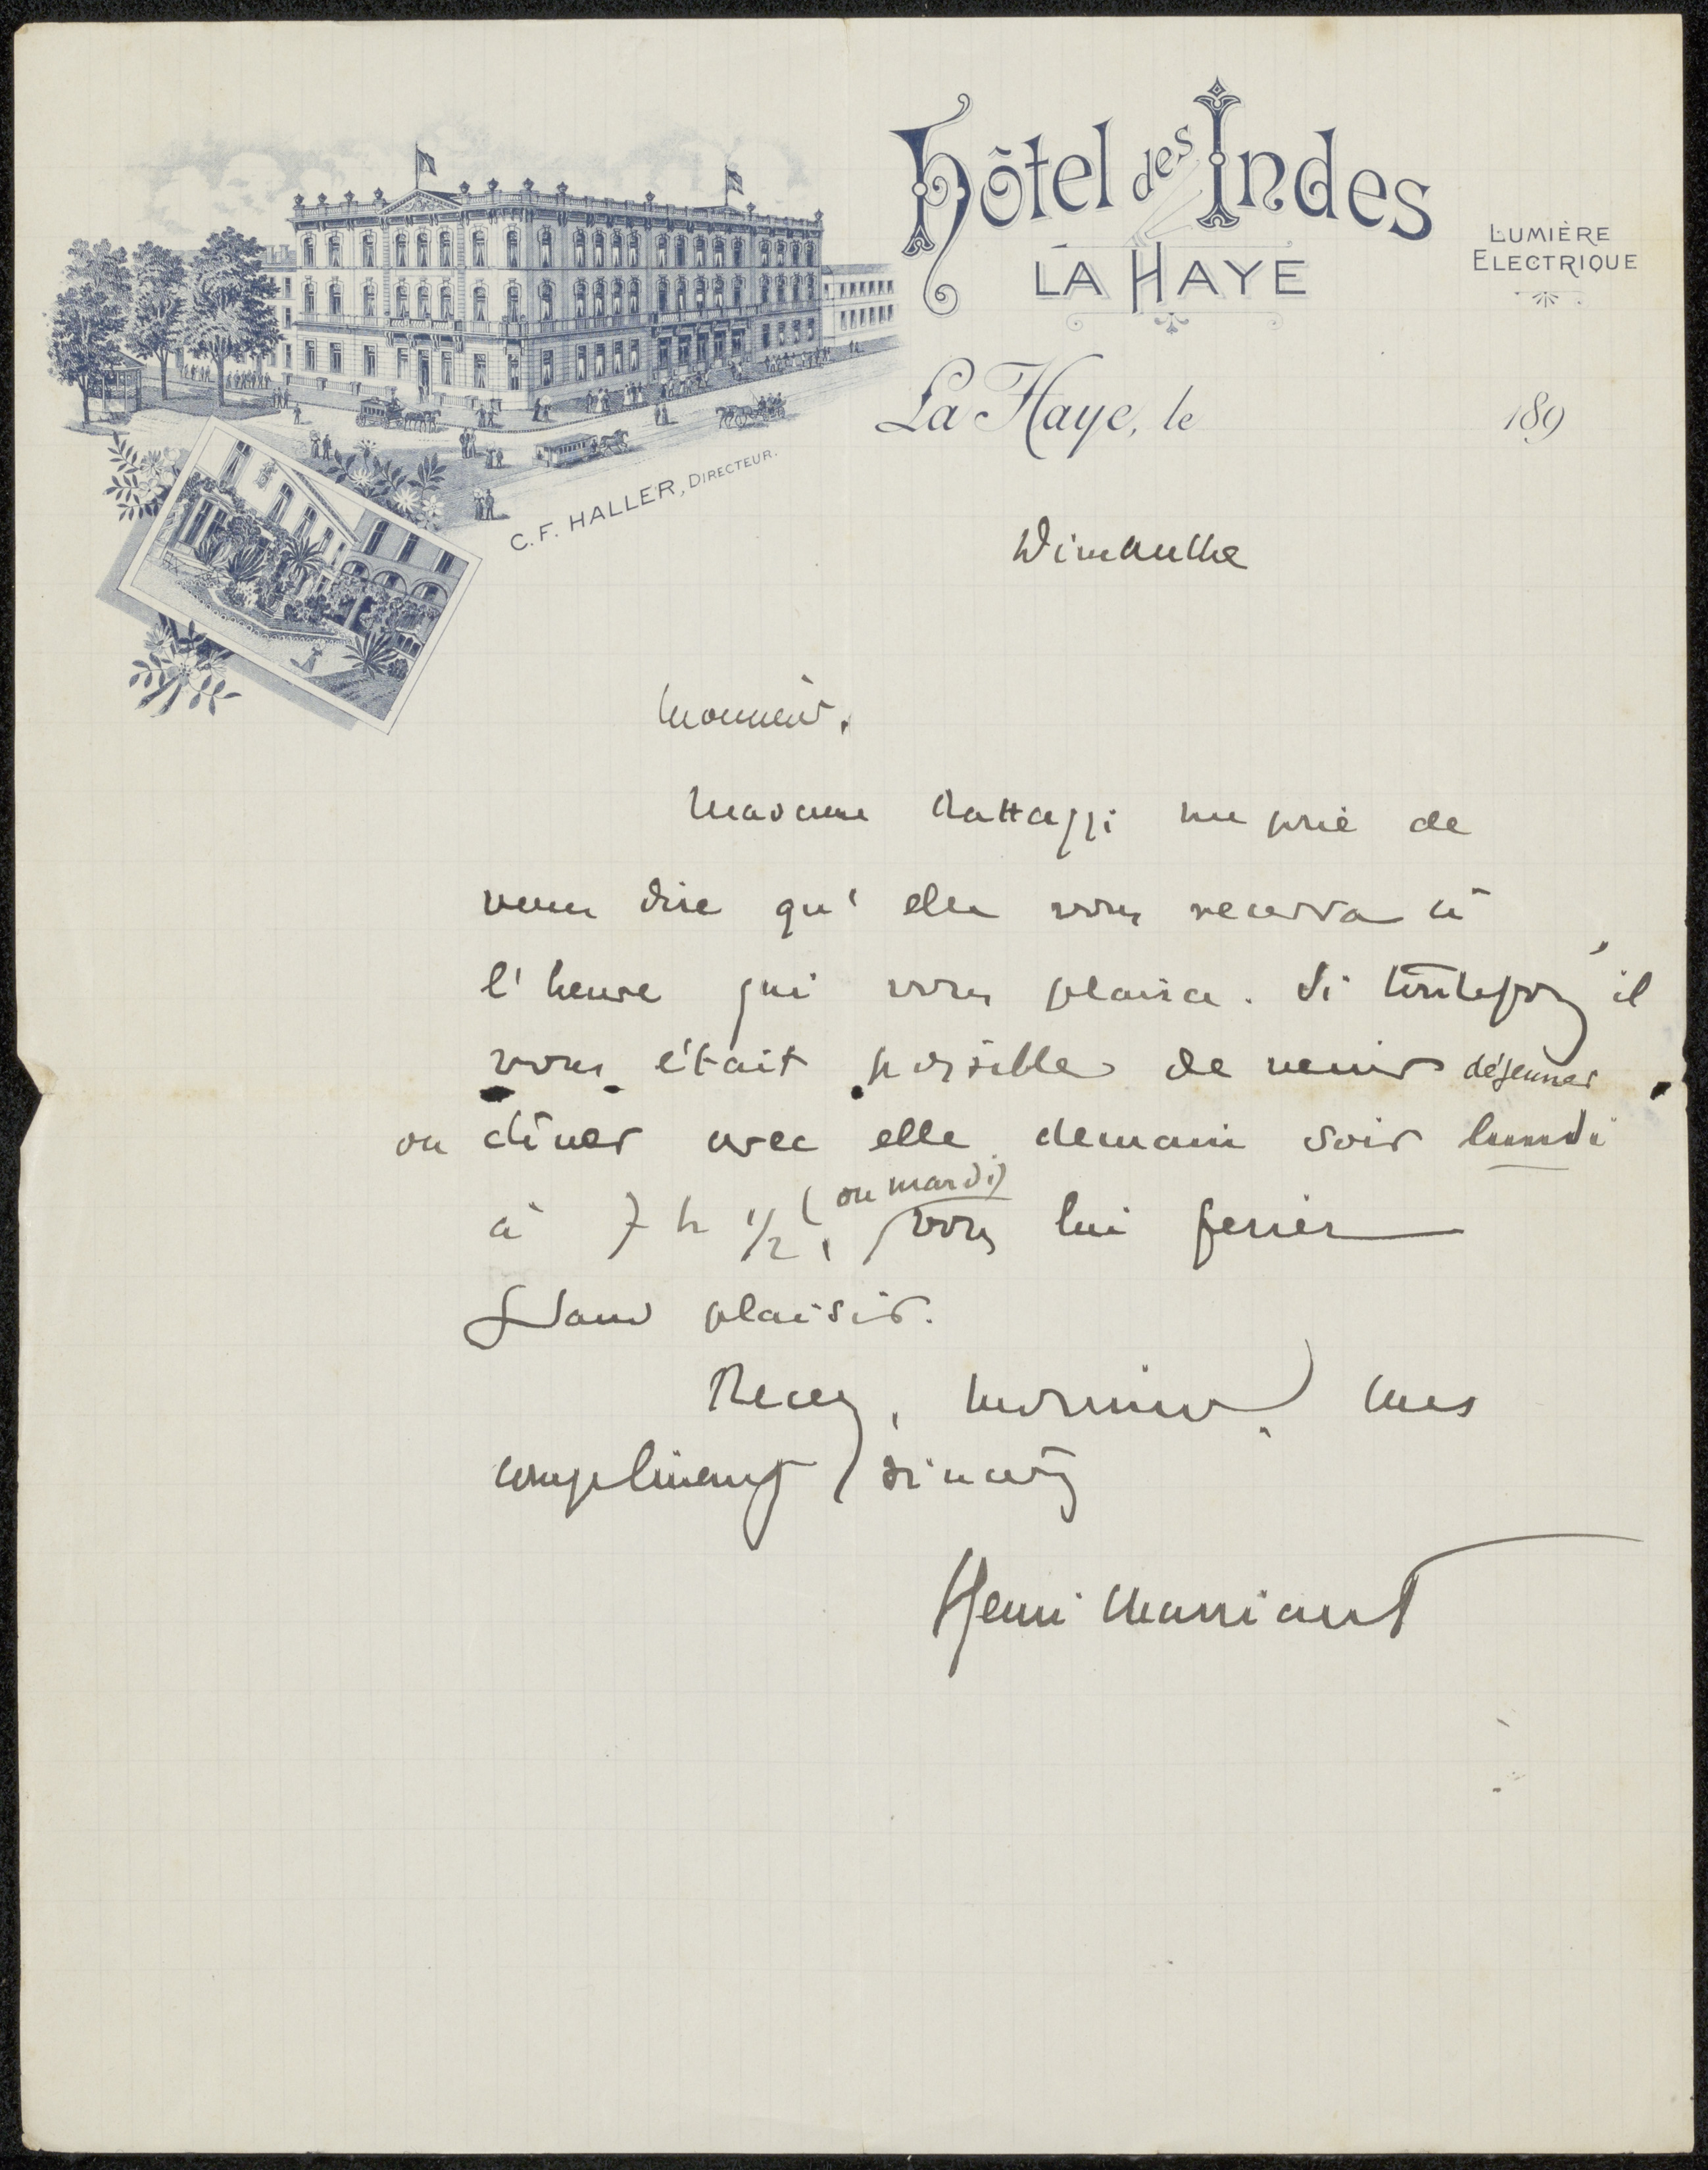 Hôtel des Indes
LA HAYE
LUMIÈRE
ELECTRIQUE
La Haye, le 189
C. F. HALLER, DIRECTEUR.
Dimanche
Monsieur,
Madame Rattazzi me prie de
vous dire qu'elle vous recevra à
l'heure qui vous plaira. Si toutefois, il
vous était possible de venir déjeuner
ou dîner avec elle demain soir lundi
à 7 h 1/2, (ou mardi) vous lui feriez
Grand plaisir.
Recevez, Monsieur, mes
compliments sincères
Henri